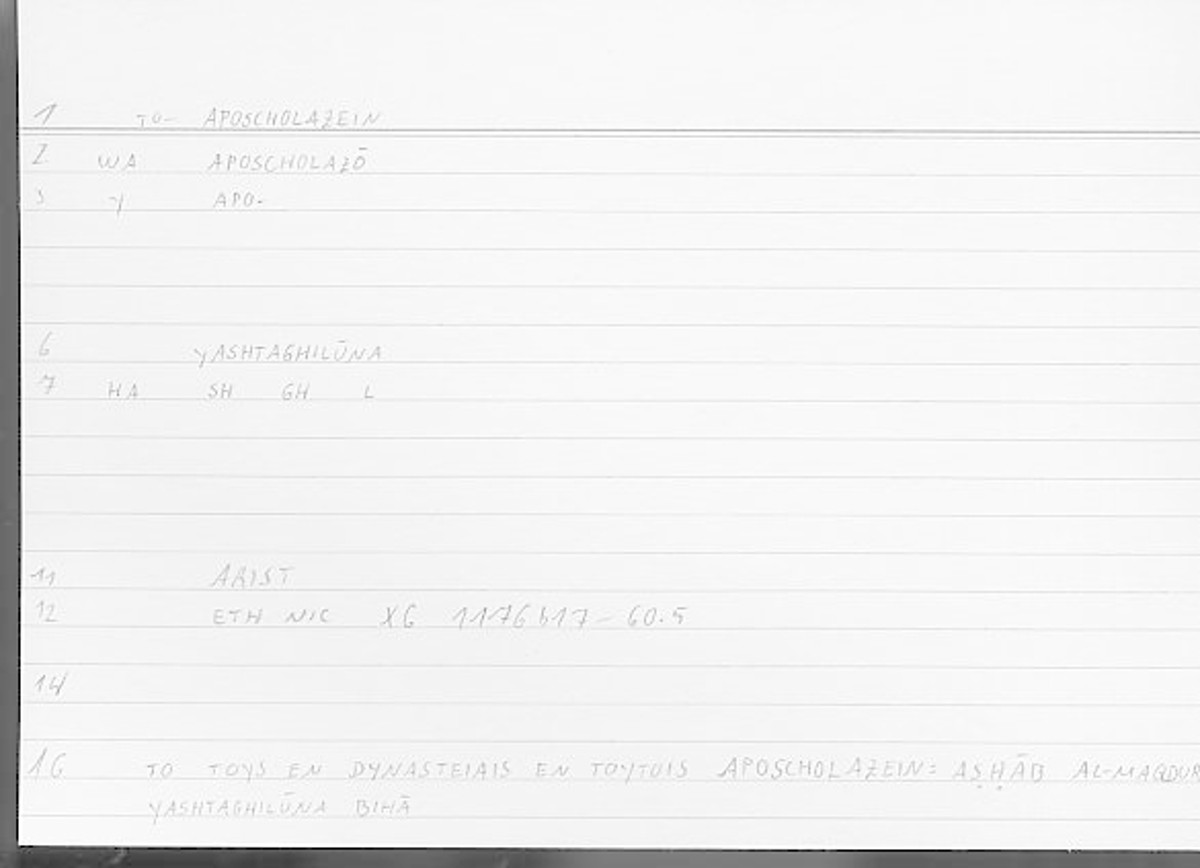 1 TO- APOSCHOLAZEIN
2 WA APOSCHOLAZŌ
3 Y APO-
6 YASHTAGHILŪNA
7 HA SH GH L
11 ARIST
12 ETH NIC X6 1176b17-60.5
14
16 TO TOYS EN DYNASTEIAIS EN TOYTOIS APOSCHOLAZEIN: AṢḤĀB AL-MAQDUR
YASHTAGHILŪNA BIHĀ